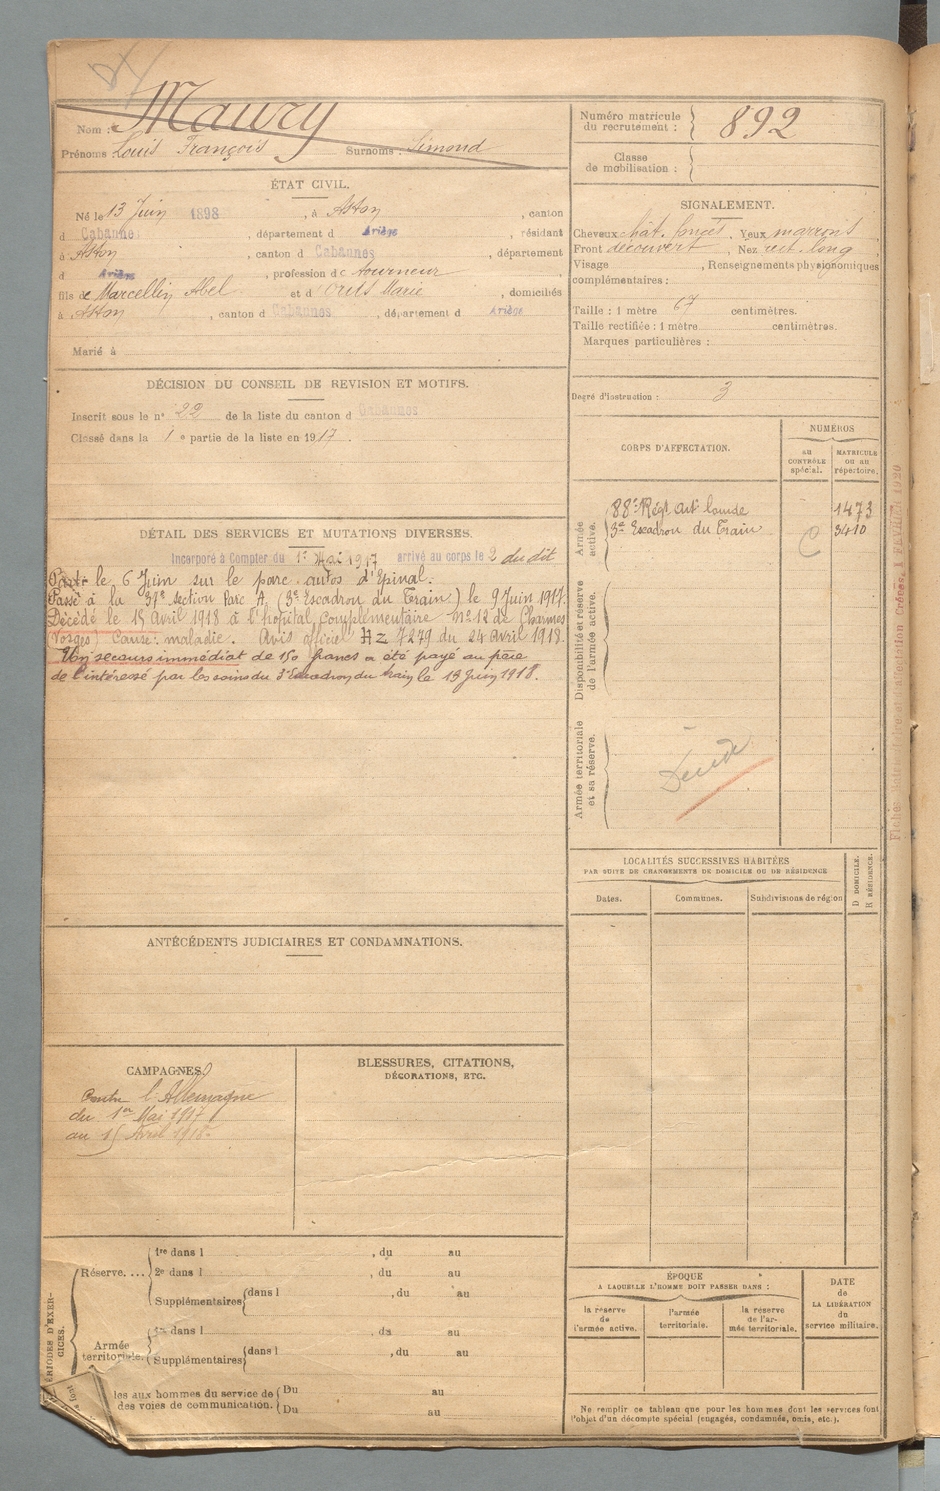 Nom : Maury
Prénoms Louis François Surnoms : Simond
ÉTAT CIVIL.
Né le 13 Juin 1898, à Aston, canton
d Cabannes, département d Ariège, résidant
à Aston, canton d Cabannes, département
d Ariège, profession de tourneur
fils de Marcellin Abel et d Marie, domiciliés
à Aston, canton d Cabannes, département d Ariège
Marié à
DÉCISION DU CONSEIL DE REVISION ET MOTIFS.
Inscrit sous le n° 22 de la liste du canton d Cabannes
Classé dans la 1e partie de la liste en 1917.
DÉTAIL DES SERVICES ET MUTATIONS DIVERSES.
Incorporé à Compter du 1er Mai 1917 arrivé au corps le 2 du dit
Parti le 6 Juin sur le parc autos d'Epinal.
Passé à la 37e section Parc A. (3e Escadron du Train) le 9 Juin 1917.
Décédé le 15 Avril 1918 à l'hôpital Complémentaire N° 12 de Charmes
(Vosges) Cause: maladie. Avis officiel HZ 7279 du 24 Avril 1918.
Un secours immédiat de 150 francs a été payé au père
de l'intéressé par les soins du 3e Escadron du train le 13 Juin 1918.
ANTÉCÉDENTS JUDICIAIRES ET CONDAMNATIONS.
CAMPAGNES
Contre l'Allemagne
du 1er Mai 1917
au 15 Avril 1918
BLESSURES, CITATIONS,
DÉCORATIONS, ETC.
PÉRIODES D'EXER-
CICES.
Réserve....
1re dans l , du au
2e dans l , du au
Supplémentaires dans l , du au
Armée
territoriale.
1re dans l , du au
Supplémentaires dans l , du au
les aux hommes du service de
des voies de communication.
Du au
Du au
Numéro matricule
du recrutement : 892
Classe
de mobilisation :
SIGNALEMENT.
Cheveux chât. foncés, Yeux marrons,
Front découvert, Nez rect. long,
Visage , Renseignements physionomiques
complémentaires :
Taille : 1 mètre 67 centimètres.
Taille rectifiée : 1 mètre centimètres.
Marques particulières :
Degré d'instruction : 3
CORPS D'AFFECTATION.
NUMÉROS
AU
CONTRÔLE
spécial.
MATRICULE
OU AU
répertoire.
Armée
active.
88e Régt Artie lourde 1473
3e Escadron du Train 3410
Disponibilité et réserve
de l'armée active.
Armée territoriale
et sa réserve.
Décédé
LOCALITÉS SUCCESSIVES HABITÉES
PAR SUITE DE CHANGEMENTS DE DOMICILE OU DE RÉSIDENCE
Dates.
Communes.
Subdivisions de région
D DOMICILE.
R RÉSIDENCE.
ÉPOQUE
A LAQUELLE L'HOMME DOIT PASSER DANS :
la réserve
de
l'armée active.
l'armée
territoriale.
la réserve
de l'ar-
mée territoriale.
DATE
de
LA LIBÉRATION
du
service militaire.
Ne remplir ce tableau que pour les hommes dont les services font
l'objet d'un décompte spécial (engagés, condamnés, omis, etc.).